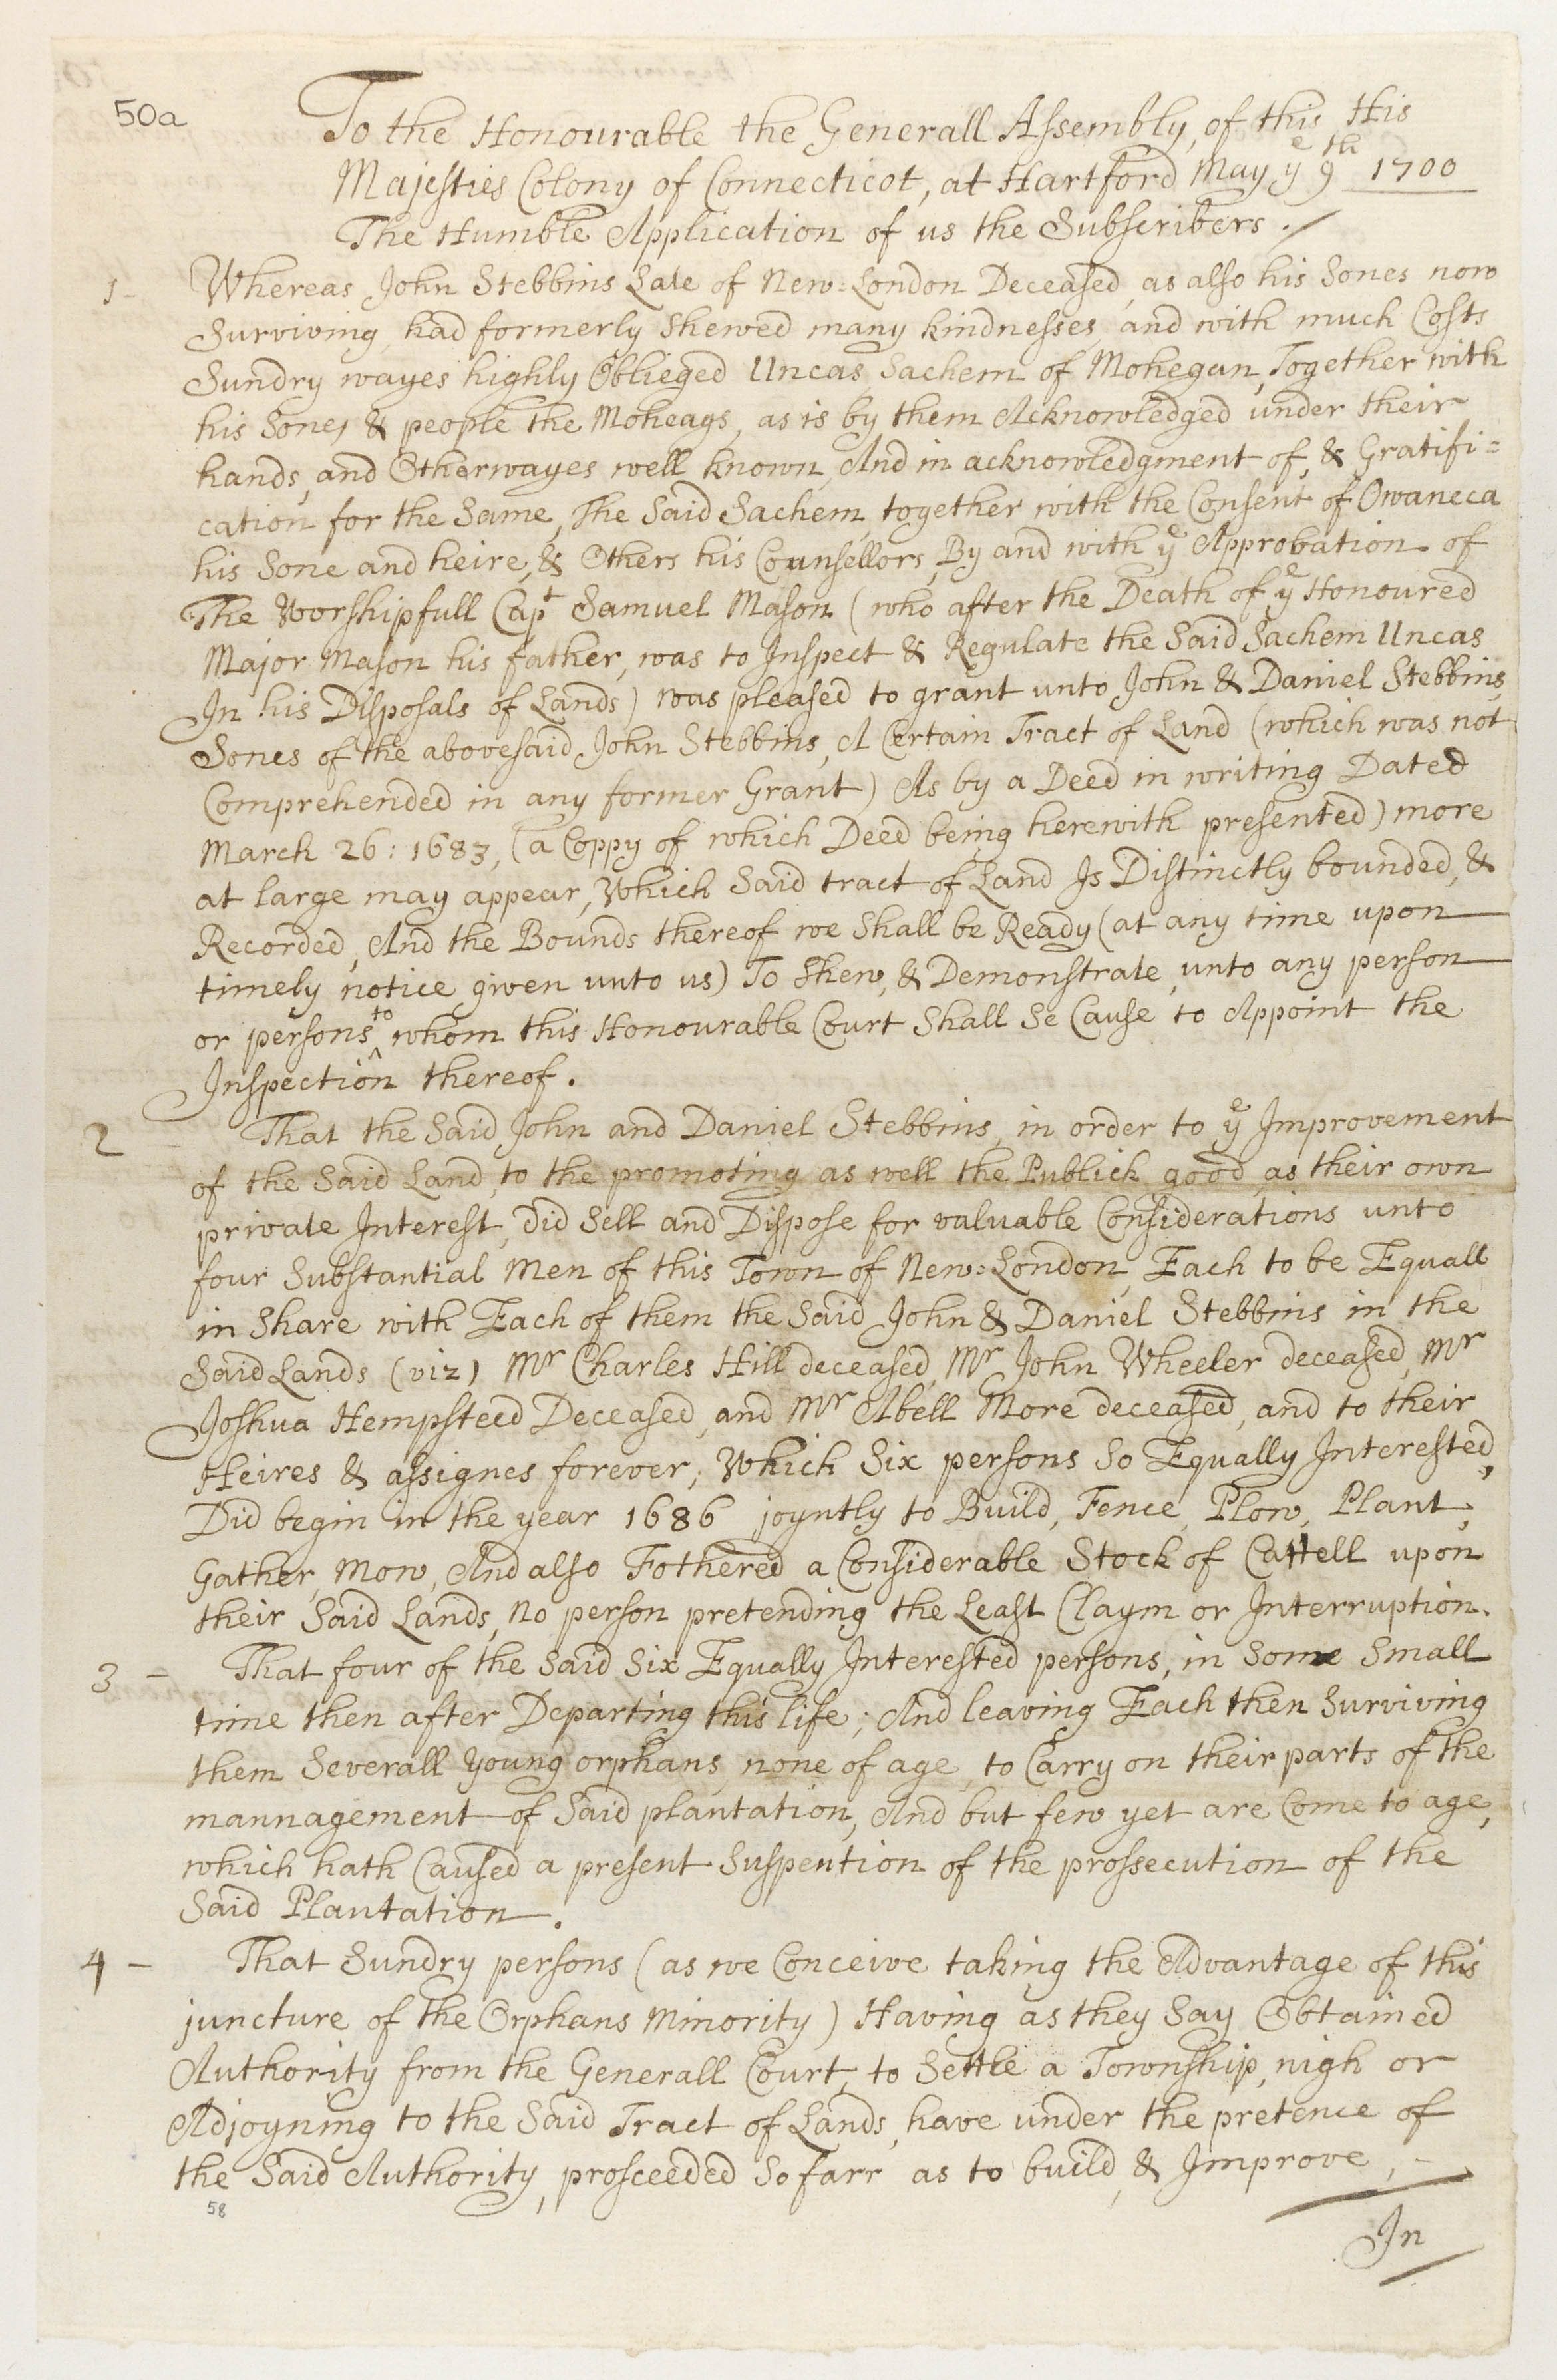 50a
To the Honourable the Generall Assembly, of this His
Majesties Colony of Connecticot, at Hartford May yᵉ 9ᵗʰ 1700
The Humble Application of us the Subscribers.
1- Whereas John Stebbins Late of New=London Deceased, as also his Sones now
Surviving, had formerly Shewed many kindnesses, and with much Costs
Sundry wayes highly Oblieged Uncas Sachem of Mohegan, Together with
his Sones & people the Moheags, as is by them Acknowledged under their
hands, and Otherwayes well known, And in acknowledgment of, & Gratifi=
cation for the Same, The Said Sachem, together with the Consent of Owaneca
his Sone and heire, & Others his Counsellors, By and with yᵉ Approbation of
The Worshipfull Capᵗ Samuel Mason (who after the Death of yᵉ Honoured
Major Mason his father, was to Inspect & Regulate the Said Sachem Uncas
In his Disposals of Lands) was pleased to grant unto John & Daniel Stebbins,
Sones of the abovesaid John Stebbins, A Certain Tract of Land (which was not
Comprehended in any former Grant) As by a Deed in writing Dated
March 26: 1683, (a Coppy of which Deed being herewith presented) more
at large may appear, Which Said tract of Land Is Distinctly bounded, &
Recorded, And the Bounds thereof we Shall be Ready (at any time upon
timely notice given unto us) To Shew, & Demonstrate, unto any person
or persons ^to whom this Honourable Court Shall Se Cause to Appoint the
Inspection thereof.
2 - That the Said John and Daniel Stebbins, in order to yᵉ Improvement
of the Said Land, to the promoting as well the Publick good, as their own
private Interest, did Sell and Dispose for valuable Considerations unto
four Substantial Men of this Town of New=London, Each to be Equall
in Share with Each of them the Said John & Daniel Stebbins in the
Said Lands (viz) Mʳ Charles Hill deceased, Mʳ John Wheeler deceased, Mʳ
Joshua Hempsteed Deceased, and Mʳ Abell More deceased, and to their
Heires & assignes forever; Which Six persons So Equally Interested,
Did begin in the year 1686 joyntly to Build, Fence, Plow, Plant,
Gather, Mow, And also Fothered a Considerable Stock of Cattell upon
their Said Lands, No person pretending the Least Claym or Interruption.
3 - That four of the Said Six Equally Interested persons, in Some Small
time then after Departing this life; And leaving Each then Surviving
them Severall Young orphans, none of age, to Carry on their parts of the
mannagement of Said plantation, And but few yet are Come to age,
which hath Caused a present Suspention of the prossecution of the
Said Plantation.
4 - That Sundry persons (as we Conceive taking the Advantage of this
juncture of the Orphans Minority) Having as they Say Obtained
Authority from the Generall Court, to Settle a Township, nigh or
Adjoyning to the Said Tract of Lands, have under the pretence of
the Said Authority, prosceeded So farr as to build, & Improve, -
58
In